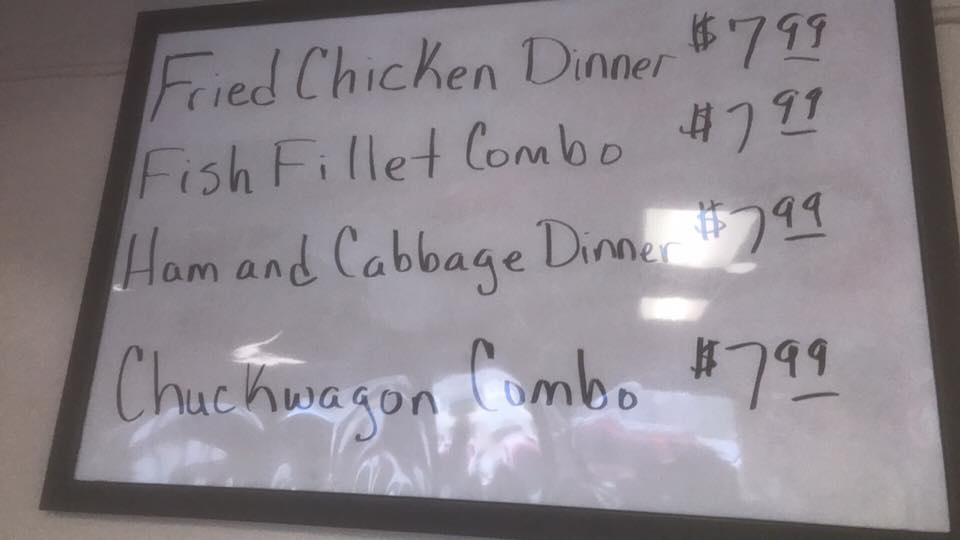 Fried Chicken Dinner $7 99
Fish Fillet Combo $7 99
Ham and Cabbage Dinner $7 99
Chuckwagon Combo $7 99